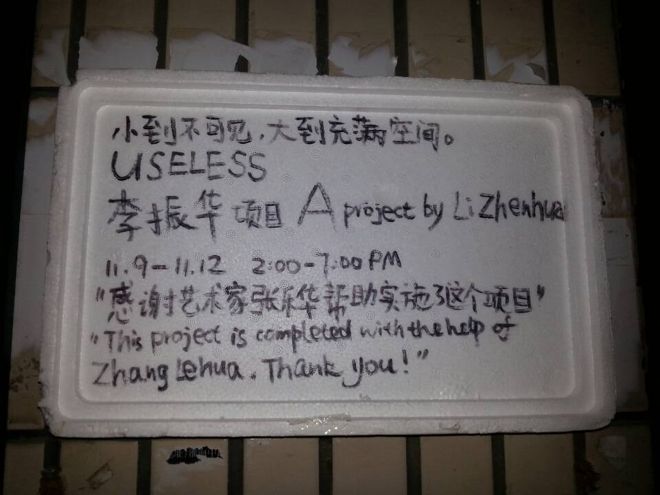 小到不可见，大到充满空间。
USELESS
李振华 项目 A project by Li Zhenhua
11.9-11.12 2:00-7:00 PM
"感谢艺术家张乐华帮助实施了这个项目"
"This project is completed with the help of
Zhang Lehua. Thank you!"